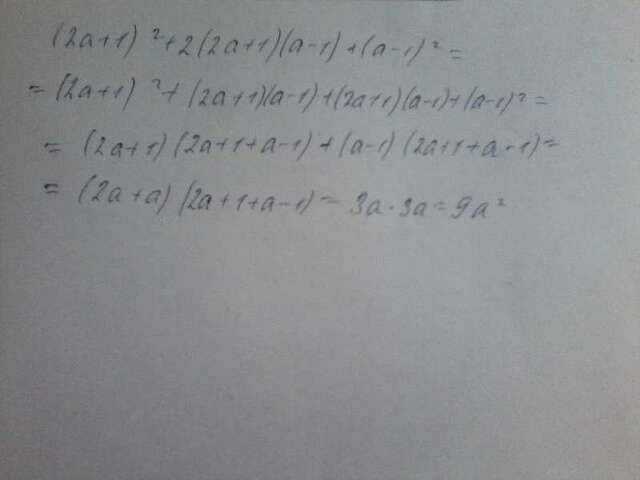 (2a+1)²+2(2a+1)(a-1)+(a-1)²=
=(2a+1)²+(2a+1)(a-1)+(2a+1)(a-1)+(a-1)²=
=(2a+1)(2a+1+a-1)+(a-1)(2a+1+a-1)=
=(2a+a)(2a+1+a-1)=3a·3a=9a²